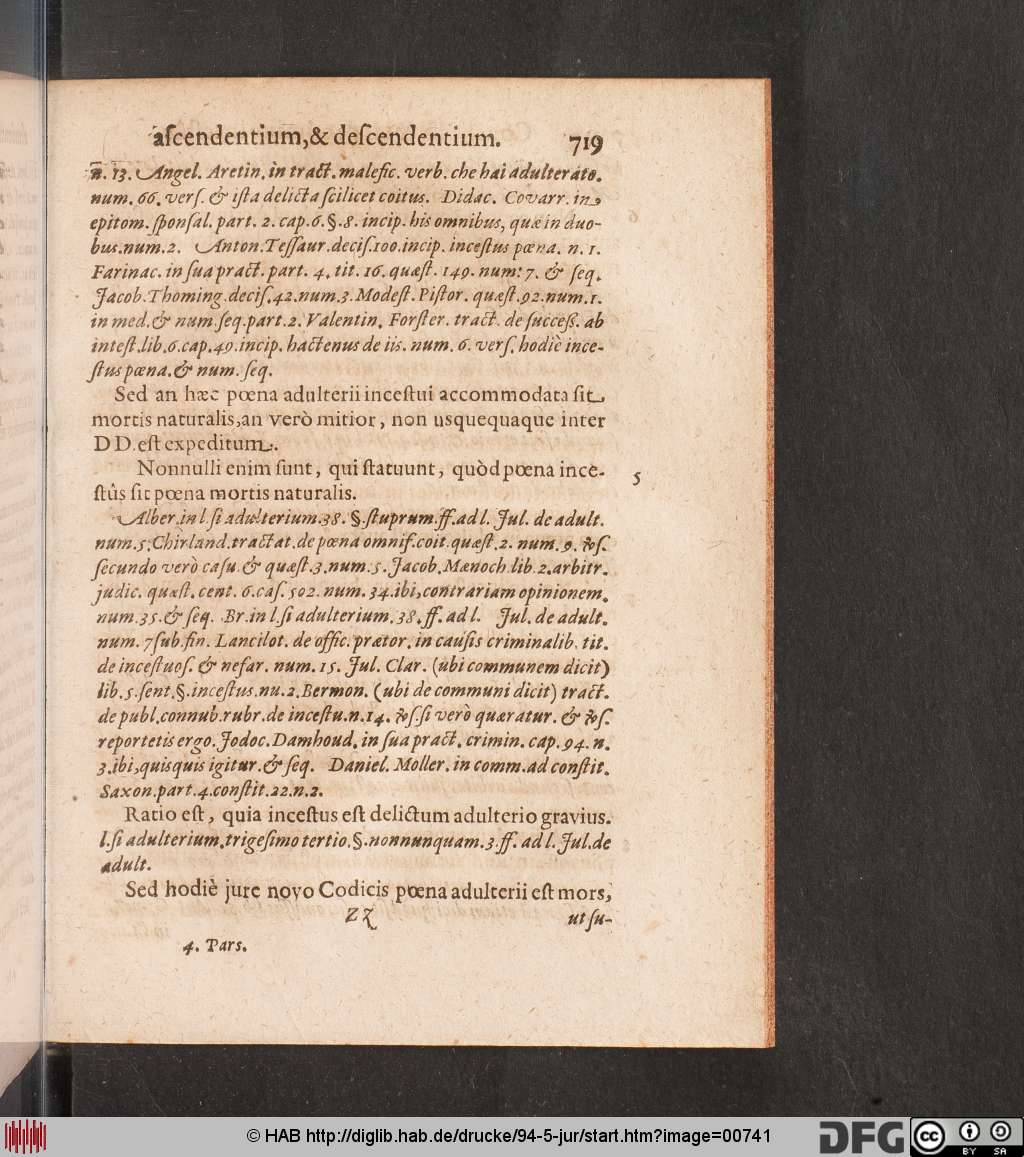 aſcendentium,& deſcendentium. 719
n. 13. Angel. Aretin. in tract. malefic. verb. che hai adulterato.
num. 66. verſ. & iſta delicta ſcilicet coitus. Didac. Covarr. in
epitom. ſponſal. part. 2. cap. 6. §. 8. incip. his omnibus, quæ in duo-
bus. num. 2. Anton. Teſſaur. deciſ. 100. incip. inceſtus pœna. n. 1.
Farinac. in ſua pract. part. 4. tit. 16. quæſt. 149. num: 7. & ſeq.
Jacob. Thoming. deciſ. 42. num. 3. Modeſt. Piſtor. quæſt. 92. num. 1.
in med. & num. ſeq. part. 2. Valentin. Forſter. tract. de ſucceſſ. ab
inteſt. lib. 6. cap. 49. incip. hactenus de iis. num. 6. verſ. hodiè ince-
ſtus pœna. & num. ſeq.
Sed an hæc pœna adulterii inceſtui accommodata ſit
mortis naturalis, an verò mitior, non usquequaque inter
DD. eſt expeditum.
Nonnulli enim ſunt, qui ſtatuunt, quòd pœna ince- 5
ſtûs ſit pœna mortis naturalis.
Alber. in l. ſi adulterium. 38. §. ſtuprum. ff. ad l. Jul. de adult.
num. 5. Chirland. tractat. de pœna omnif. coit. quæſt. 2. num. 9. &ſ.
ſecundo verò caſu. & quæſt. 3. num. 5. Jacob. Mænoch. lib. 2. arbitr.
judic. quæſt. cent. 6. caſ. 502. num. 34. ibi, contrariam opinionem.
num. 35. & ſeq. Br. in l. ſi adulterium. 38. ff. ad l. Jul. de adult.
num. 7 ſub. fin. Lancilot. de offic. prætor. in cauſis criminalib. tit.
de inceſtuoſ. & nefar. num. 15. Jul. Clar. (ubi communem dicit)
lib. 5. ſent. §. inceſtus. nu. 2. Bermon. (ubi de communi dicit) tract.
de publ. connub. rubr. de inceſtu. n. 14. &ſ. ſi verò quæratur. & &ſ.
reportetis ergo. Jodoc. Damhoud. in ſua pract. crimin. cap. 94. n.
3. ibi, quisquis igitur. & ſeq. Daniel. Moller. in comm. ad conſtit.
Saxon. part. 4. conſtit. 22. n. 2.
Ratio eſt, quia inceſtus eſt delictum adulterio gravius.
l. ſi adulterium. trigeſimo tertio. §. nonnunquam. 3. ff. ad l. Jul. de
adult.
Sed hodiè jure novo Codicis pœna adulterii eſt mors,
Zz ut ſu-
4. Pars.
© HAB http://diglib.hab.de/drucke/94-5-jur/start.htm?image=00741
DFG
cc BY SA